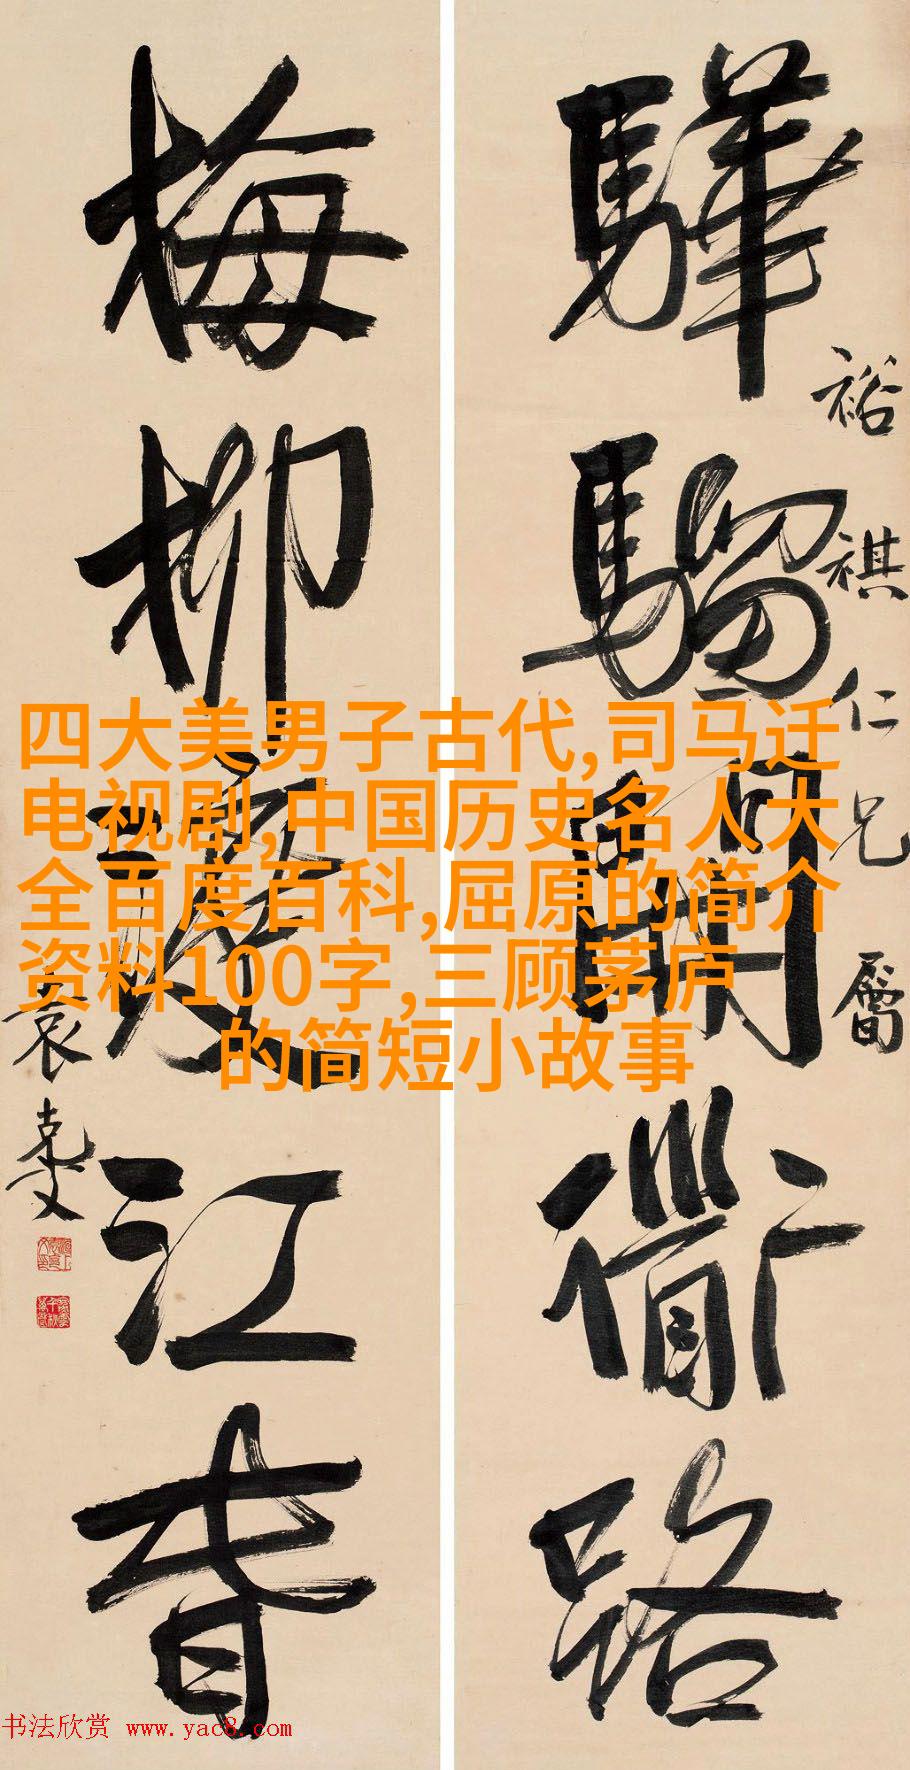 驊騮開衜路
裕祺仁兄屬
梅柳渡江春
袁克文
四大美男子古代,司马迁
电视剧,中国历史名人大
全百度百科,屈原的简介
资料100字,三顾茅庐
的简短小故事
书法欣赏 www.yac8.com